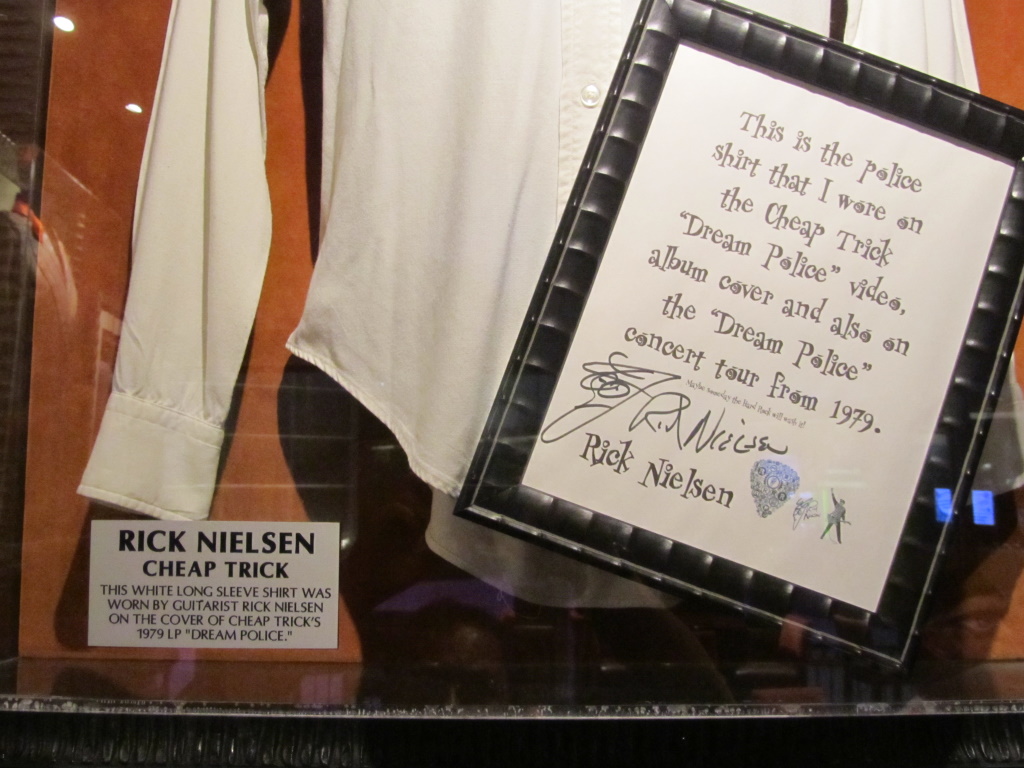 RICK NIELSEN
CHEAP TRICK
THIS WHITE LONG SLEEVE SHIRT WAS
WORN BY GUITARIST RICK NIELSEN
ON THE COVER OF CHEAP TRICK'S
1979 LP "DREAM POLICE."
This is the police
shirt that I wore on
the Cheap Trick
"Dream Police" video,
album cover and also on
the "Dream Police"
concert tour from 1979.
Maybe someday the Hard Rock will wash it!
Rick Nielsen